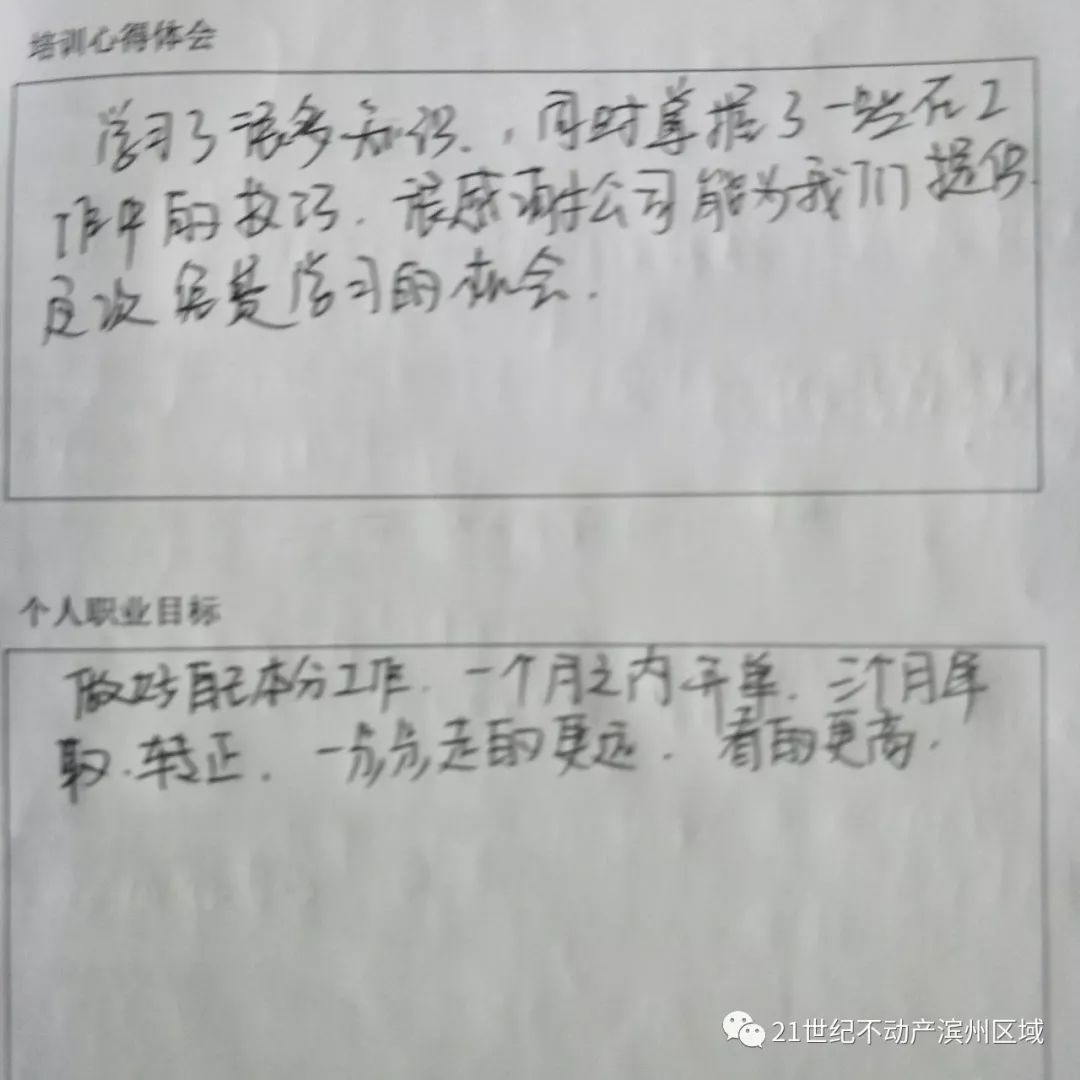 培训心得体会
学习了很多知识.,同时掌握了一些在工
作中的技巧.很感谢公司能为我们提供
这次免费学习的机会.
个人职业目标
做好自己本分工作.一个月之内开单.三个月争
取.转正.一步步走的更远.看的更高.
21世纪不动产滨州区域